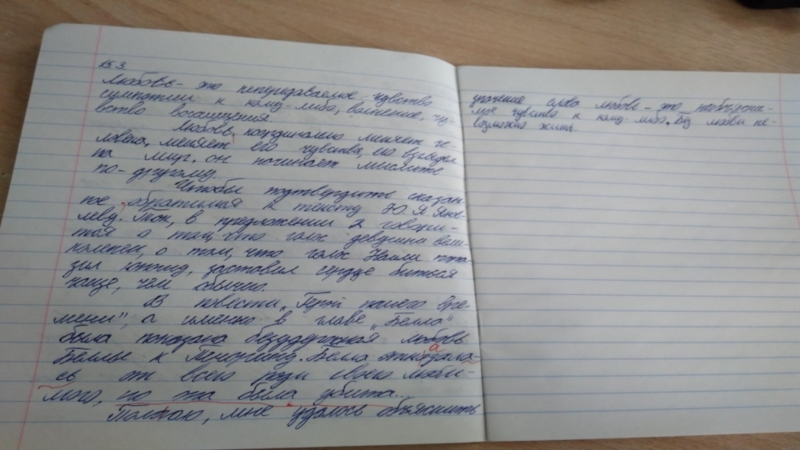 15.3
Любовь - это непередаваемое чувство
симпатии к кому-либо, влечение, чу-
вство восхищения.
Любовь кардинально меняет че-
ловека, меняет его чувства, его взгляды
на мир, он начинает мыслить
по-другому.
Чтобы подтвердить сказан-
ное, обратимся к тексту Ю. Я. Яков-
леву. Так, в предложении 2 говори-
тся о том, что голос девушки вели-
колепен, о том, что голос Наили
заставил сердце биться
чаще, чем обычно.
В повести "Герой нашего вре-
мени", а именно в главе "Белла"
была показана безудержная любовь
Беллы к Печорину. Бела отказала-
сь от всего ради своего люби-
мого, но та была убита...
Полагаю, мне удалось объяснить
значение слова любовь - это необъясни-
мое чувство к кому-либо. Без любви не-
возможна жизнь.